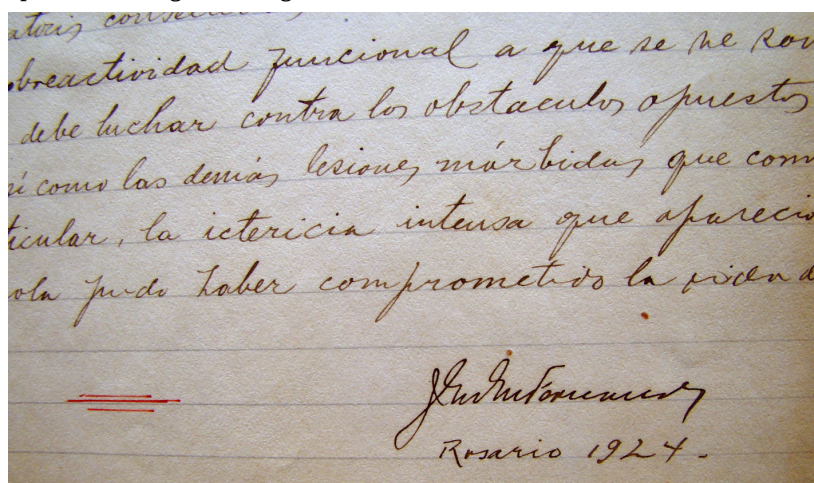 breactividad funcional a que se ve
debe luchar contra los obstaculos opuestos
sí como las demás lesiones mórbidas que com
ticular, la ictericia intensa que aparecio
ola pudo haber comprometido la vida d
Rosario 1924.